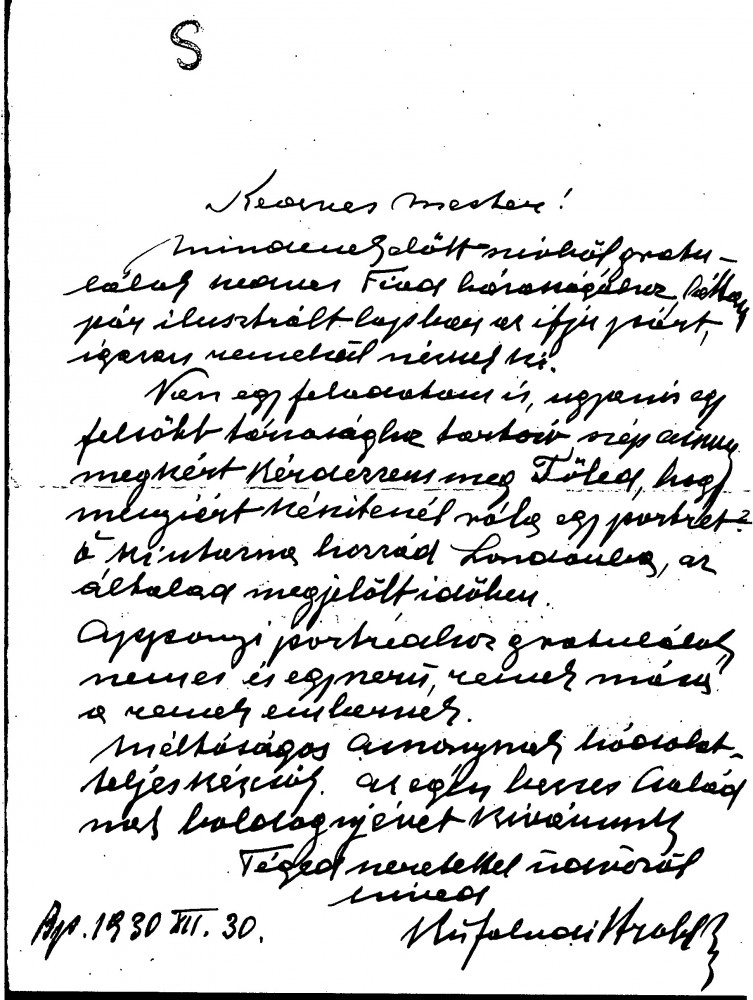 S
Kedves Mester!
Mindenek előtt szívből gratu-
lálok kedves Fiad házasságához, láttam
pár ilusztrált lapban az ifju párt,
igazán remekül néznek ki.
Van egy feladatom is, ugyanis egy
felsőbb társasághoz tartozó szép asszony
megkért kérdezzem meg Tőled, hogy
mennyiért készitenél róla egy portret?
Ő kiutazna hozzád Londonba, az
általad megjelölt időben.
Apponyi portrédhoz gratulálok,
nemes és egyszerű, remek mása
a remek embernek.
Méltóságos Asszonynak hódolat-
teljes kézcsók. Az egész kedves Család
nak boldog ujévet kívánunk
Téged szeretettel üdvözöl
hived
Kisfaludi Strobl Zs
Bp. 1930 XII. 30.